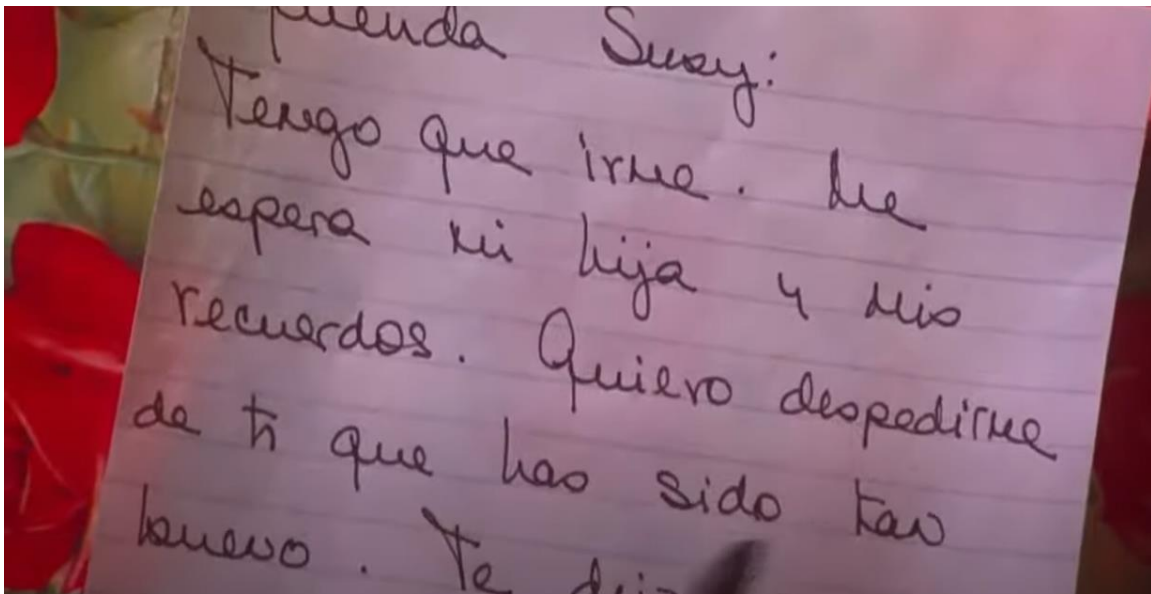 Querida Susy:
Tengo que irme. Me
espera mi hija y mis
recuerdos. Quiero despedirme
de ti que has sido tan
bueno. Te